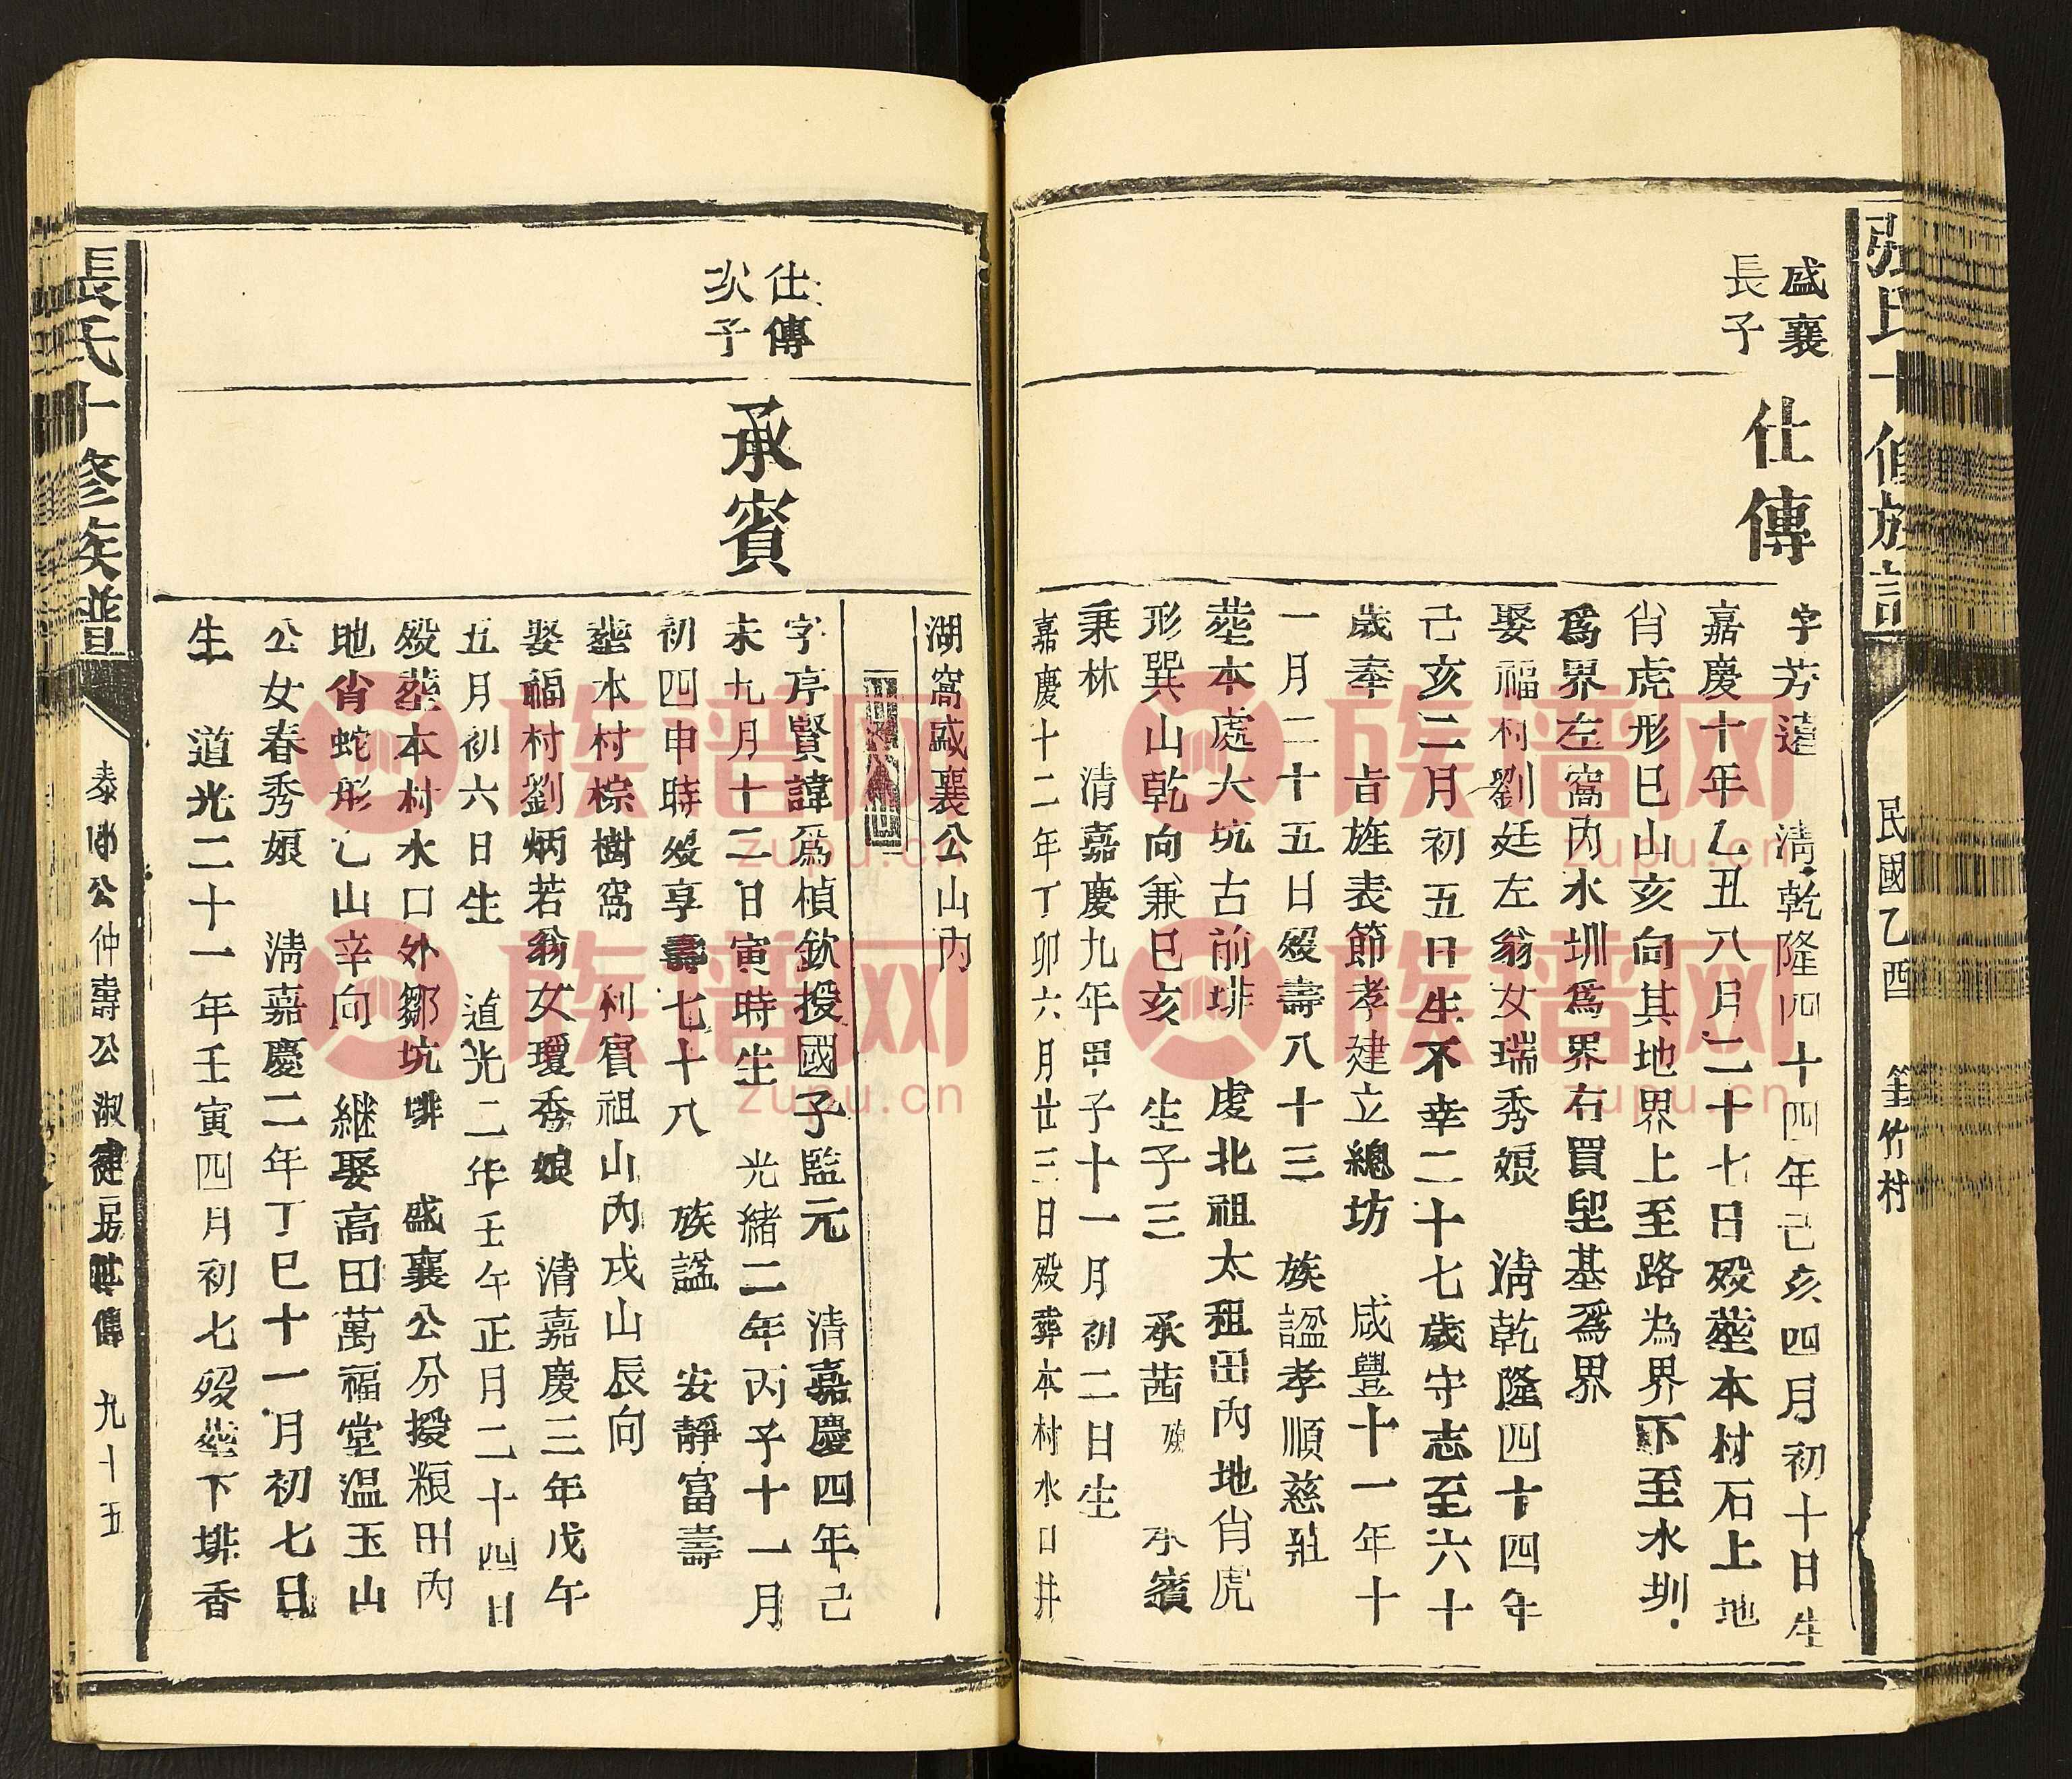 張氏十修族譜
民國乙酉
筀竹村
盛襄
長子
仕傳
字芳遠　清乾隆四十四年己亥四月初十日生
嘉慶十年乙丑八月二十七日歿塟本村石上地
肖虎形巳山亥向其地界上至路為界下至水圳
爲界左窩內水圳爲界右買坒基爲界
娶福村劉廷左翁女瑞秀娘　清乾隆四十四年
己亥二月初五日生不幸二十七歲守志至六十
歲奉　旨旌表節孝建立總坊　咸豐十一年十
一月二十五日歿壽八十三　族諡孝順慈莊
塟本處大坑古前排　虔北祖太祖田內地肖虎
形巽山乾向兼巳亥　生子三　承茜　承賓
秉林　清嘉慶九年甲子十一月初二日生
嘉慶十二年丁卯六月廿三日歿葬本村水口井
湖窩盛襄公山內
仕傳
次子
承賓
字享賢諱爲楨欽授國子監元　清嘉慶四年己
未九月十二日寅時生　光緒二年丙子十一月
初四申時歿享壽七十八　族諡　安靜富壽
塟本村棕樹窩　利賓祖山內戌山辰向
娶福村劉炳若翁女瓊秀娘　清嘉慶三年戊午
五月初六日生　道光二年壬午正月二十四日
歿塟本村水口外鄒坑排　盛襄公分授粮田內
地肖蛇形乙山辛向　継娶高田萬福堂温玉山
公女春秀娘　清嘉慶二年丁巳十一月初七日
生　道光二十一年壬寅四月初七歿塟下排香
張氏十修族譜
泰公仲壽公淑健房世傳
九十五
族谱网
zupu.cn
族谱网
zupu.cn
族谱网
zupu.cn
族谱网
zupu.cn